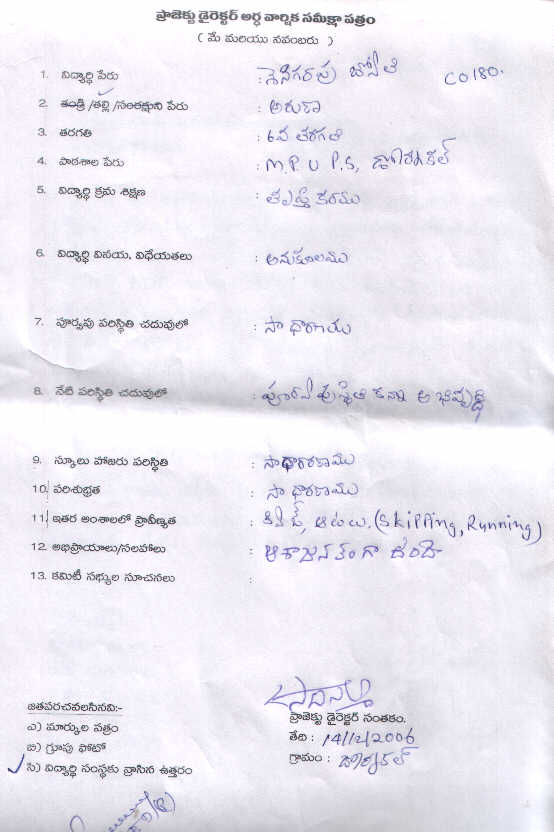 ప్రాజెక్టు డైరెక్టర్ అర్ధ వార్షిక సమీక్షా పత్రం
( మే మరియు నవంబరు )
1. విద్యార్థి పేరు : CO180.
2. తండ్రి/తల్లి/సంరక్షుని పేరు : అరుణ
3. తరగతి : 6వ తరగతి
4. పాఠశాల పేరు : M.P U P.S, డోర్నకల్
5. విద్యార్థి క్రమ శిక్షణ :
6. విద్యార్థి వినయ, విధేయతలు : అనుకూలము
7. పూర్వపు పరిస్థితి చదువులో : సాధారణము
8. నేటి పరిస్థితి చదువులో : కన్నా అభివృద్ధి
9. స్కూలు హాజరు పరిస్థితి : సాధారణము
10. పరిశుభ్రత : సాధారణము
11. ఇతర అంశాలలో ప్రావీణ్యత : క్విజ్, ఆటలు. (Skipping, Running)
12. అభిప్రాయాలు/సలహాలు : ఆశాజనకంగా ఉంది
13. కమిటీ సభ్యుల సూచనలు :
జతపరచవలసినవి:-
ఎ) మార్కుల పత్రం
బి) గ్రూపు ఫోటో
సి) విద్యార్థి సంస్థకు వ్రాసిన ఉత్తరం
ప్రాజెక్టు డైరెక్టర్ సంతకం.
తేది : 14/12/2006
గ్రామం : డోర్నకల్